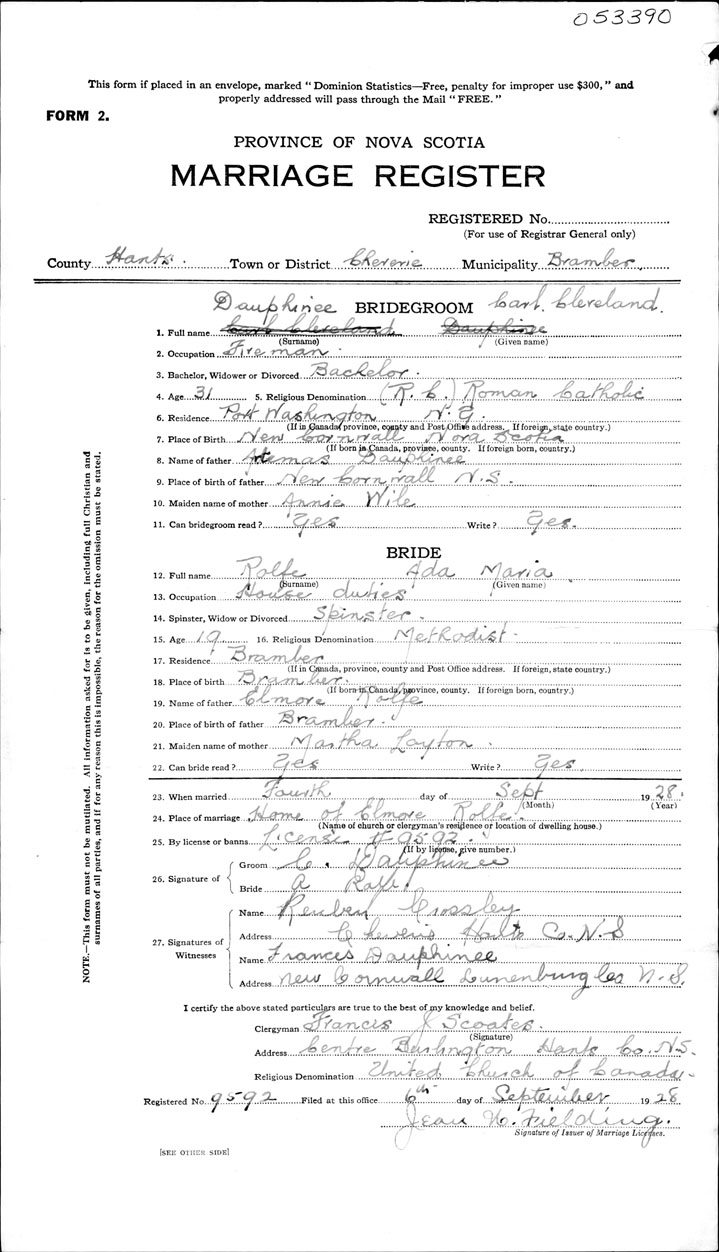 053390
This form if placed in an envelope, marked "Dominion Statistics—Free, penalty for improper use $300," and
properly addressed will pass through the Mail "FREE."
FORM 2.
PROVINCE OF NOVA SCOTIA
MARRIAGE REGISTER
REGISTERED No.
(For use of Registrar General only)
County Hants. Town or District Cheverie Municipality Bramber
Dauphinee BRIDEGROOM Carl. Cleveland.
1. Full name Carl Cleveland Dauphinee
(Surname) (Given name)
2. Occupation Fireman
3. Bachelor, Widower or Divorced Bachelor.
4. Age 31 5. Religious Denomination (R. C.) Roman Catholic
6. Residence Port Washington N. Y.
(If in Canada, province, county and Post Office address. If foreign, state country.)
7. Place of Birth New Cornwall Nova Scotia
(If born in Canada, province, county. If foreign born, country.)
8. Name of father Artemas Dauphinee
9. Place of birth of father New Cornwall N.S.
10. Maiden name of mother Annie Wile
11. Can bridegroom read? Yes Write? Yes.
BRIDE
12. Full name Rolfe Ada Maria
(Surname) (Given name)
13. Occupation House duties
14. Spinster, Widow or Divorced Spinster.
15. Age 19 16. Religious Denomination Methodist
17. Residence Bramber
(If in Canada, province, county and Post Office address. If foreign, state country.)
18. Place of birth Bramber.
(If born in Canada, province, county. If foreign born, country.)
19. Name of father Elmore Rolfe
20. Place of birth of father Bramber.
21. Maiden name of mother Martha Layton.
22. Can bride read? Yes Write? Yes.
23. When married Fourth day of Sept 1928.
(Month) (Year)
24. Place of marriage Home of Elmore Rolfe.
(Name of church or clergyman's residence or location of dwelling house.)
25. By license or banns License # 9592.
(If by license, give number.)
26. Signature of Groom C. Dauphinee
Bride A Rolfe
27. Signatures of Witnesses Name Reuben Crossley
Address Cheverie Hants Co. N.S
Name Francis Dauphinee
Address New Cornwall Lunenburg Co N.S.
I certify the above stated particulars are true to the best of my knowledge and belief.
Clergyman Francis J Scoates.
(Signature)
Address Centre Burlington Hants Co. N.S.
Religious Denomination United Church of Canada.
Registered No. 9592 Filed at this office 6th day of September 1928
Jean W. Fielding.
Signature of Issuer of Marriage Licenses.
[SEE OTHER SIDE]
NOTE.—This form must not be mutilated. All information asked for is to be given, including full Christian and
surnames of all parties, and if for any reason this is impossible, the reason for the omission must be stated.